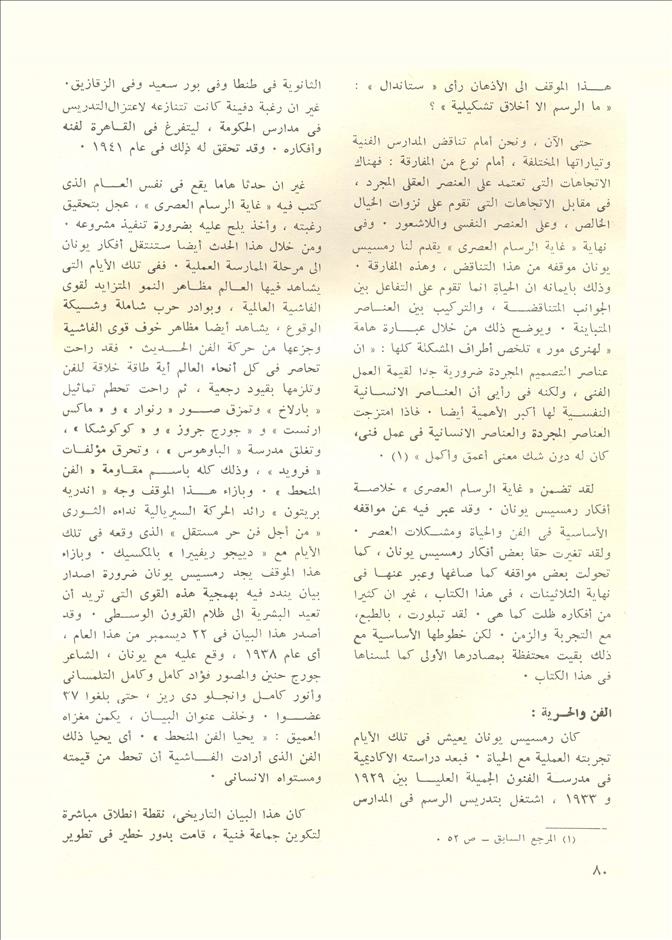 هـــذا الموقف الى الأذهان رأى « ستاندال » :
« ما الرسم الا أخلاق تشكيلية » ؟
حتى الآن ، ونحن أمام تناقض المدارس الفنية
وتياراتها المختلفة ، أمام نوع من المفارقة : فهناك
الاتجاهات التى تعتمد على العنصر العقلى المجرد ،
فى مقابل الاتجاهات التى تقوم على نزوات الخيال
الخالص ، وعلى العنصر النفسى واللاشعور · وفى
نهاية « غاية الرسام العصرى » يقدم لنا رمسيس
يونان موقفه من هذا التناقض ، وهذه المفارقة ·
وذلك بايمانه ان الحياة انما تقوم على التفاعل بين
الجوانب المتناقضــة ، والتركيب بين العناصر
المتباينة · ويوضح ذلك من خلال عبــارة هامة
« لهنرى مور » تلخص أطراف المشكلة كلها : « ان
عناصر التصميم المجردة ضرورية جدا لقيمة العمل
الفنى ، ولكنه فى رأيى أن العناصر الانسانية
النفسية لها أكبر الأهمية أيضا · فاذا امتزجت
العناصر المجردة والعناصر الانسانية فى عمل فنى،
كان له دون شك معنى أعمق وأكمل » (١) ·
لقد تضمن « غاية الرسام العصرى » خلاصة
أفكار رمسيس يونان · وقد عبر فيه عن مواقفه
الأساسية فى الفن والحياة ومشـكلات العصر ·
ولقد تغيرت حقا بعض أفكار رمسيس يونان ، كما
تحولت بعض مواقفه كما صاغها وعبر عنهــا فى
نهاية الثلاثينات ، فى هذا الكتاب ، غير ان كثيرا
من أفكاره ظلت كما هى · لقد تبلورت ، بالطبع،
مع التجربة والزمن · لكن خطوطها الأساسية مع
ذلك بقيت محتفظة بمصادرها الأولى كما لمسناها
فى هذا الكتاب ·
الفن والحرية :
كان رمسيس يونان يعيش فى تلك الأيام
تجربته العملية مع الحياة · فبعد دراسته الاكاديمية
فى مدرسة الفنون الجميلة العليــا بين ١٩٢٩
و ١٩٣٣ ، اشتغل بتدريس الرسم فى المدارس
(١) المرجع السابق – ص ٥٢ ·
٨٠
الثانوية فى طنطا وفى بور سعيد وفى الزقازيق·
غير ان رغبة دفينة كانت تتنازعه لاعتزال التدريس
فى مدارس الحكومة ، ليتفرغ فى القــاهرة لفنه
وأفكاره · وقد تحقق له ذلك فى عام ١٩٤١ ·
غير ان حدثا هاما يقع فى نفس العــام الذى
كتب فيه « غاية الرسام العصرى » ، عجل بتحقيق
رغبته ، وأخذ يلح عليه بضرورة تنفيذ مشروعه ·
ومن خلال هذا الحدث أيضا ستنتقل أفكار يونان
الى مرحلة الممارسة العملية · ففى تلك الأيام التى
يشاهد فيها العــالم مظاهر النمو المتزايد لقوى
الفاشية العالمية ، وبوادر حرب شاملة وشــيكة
الوقوع ، يشاهد أيضا مظاهر خوف قوى الفاشية
وجزعها من حركة الفن الحــديث · فقد راحت
تحاصر فى كل أنحاء العالم أية طاقة خلاقة للفن
وتلزمها بقيود رجعية ، ثم راحت تحطم تماثيل
« بارلاخ » وتمزق صــور « رنوار » و « ماكس
ارنست » و « جورج جروز » و « كوكوشكا » ،
وتغلق مدرسة « الباوهوس » ، وتحرق مؤلفـات
« فرويد » ، وذلك كله باســم مقـاومة « الفن
المنحط » · وبازاء هــذا الموقف وجه « اندريه
بريتون » رائد الحركة السيريالية نداءه الثــورى
« من أجل فن حر مستقل » الذى وقعه فى تلك
الأيام مع « دييجو ريفييرا » بالمكسيك · وبازاء
هذا الموقف يجد رمسيس يونان ضرورة اصدار
بيان يندد فيه بهمجية هذه القوى التى تريد أن
تعيد البشرية الى ظلام القرون الوســطى · وقد
أصدر هذا البيان فى ٢٢ ديسمبر من هذا العام ،
أى عام ١٩٣٨ ، وقع عليه مع يونان ، الشاعر
جورج حنين والمصور فؤاد كامل وكامل التلمسانى
وأنور كامــل وانجلو دى ريز ، حتى بلغوا ٣٧
عضــوا · وخلف عنوان البيــان ، يكمن مغزاه
العميق : « يحيا الفن المنحط » · أى يحيا ذلك
الفن الذى أرادت الفــاشية أن تحط من قيمته
ومستواه الانسانى ·
كان هذا البيان التاريخى، نقطة انطلاق مباشرة
لتكوين جماعة فنية ، قامت بدور خطير فى تطوير